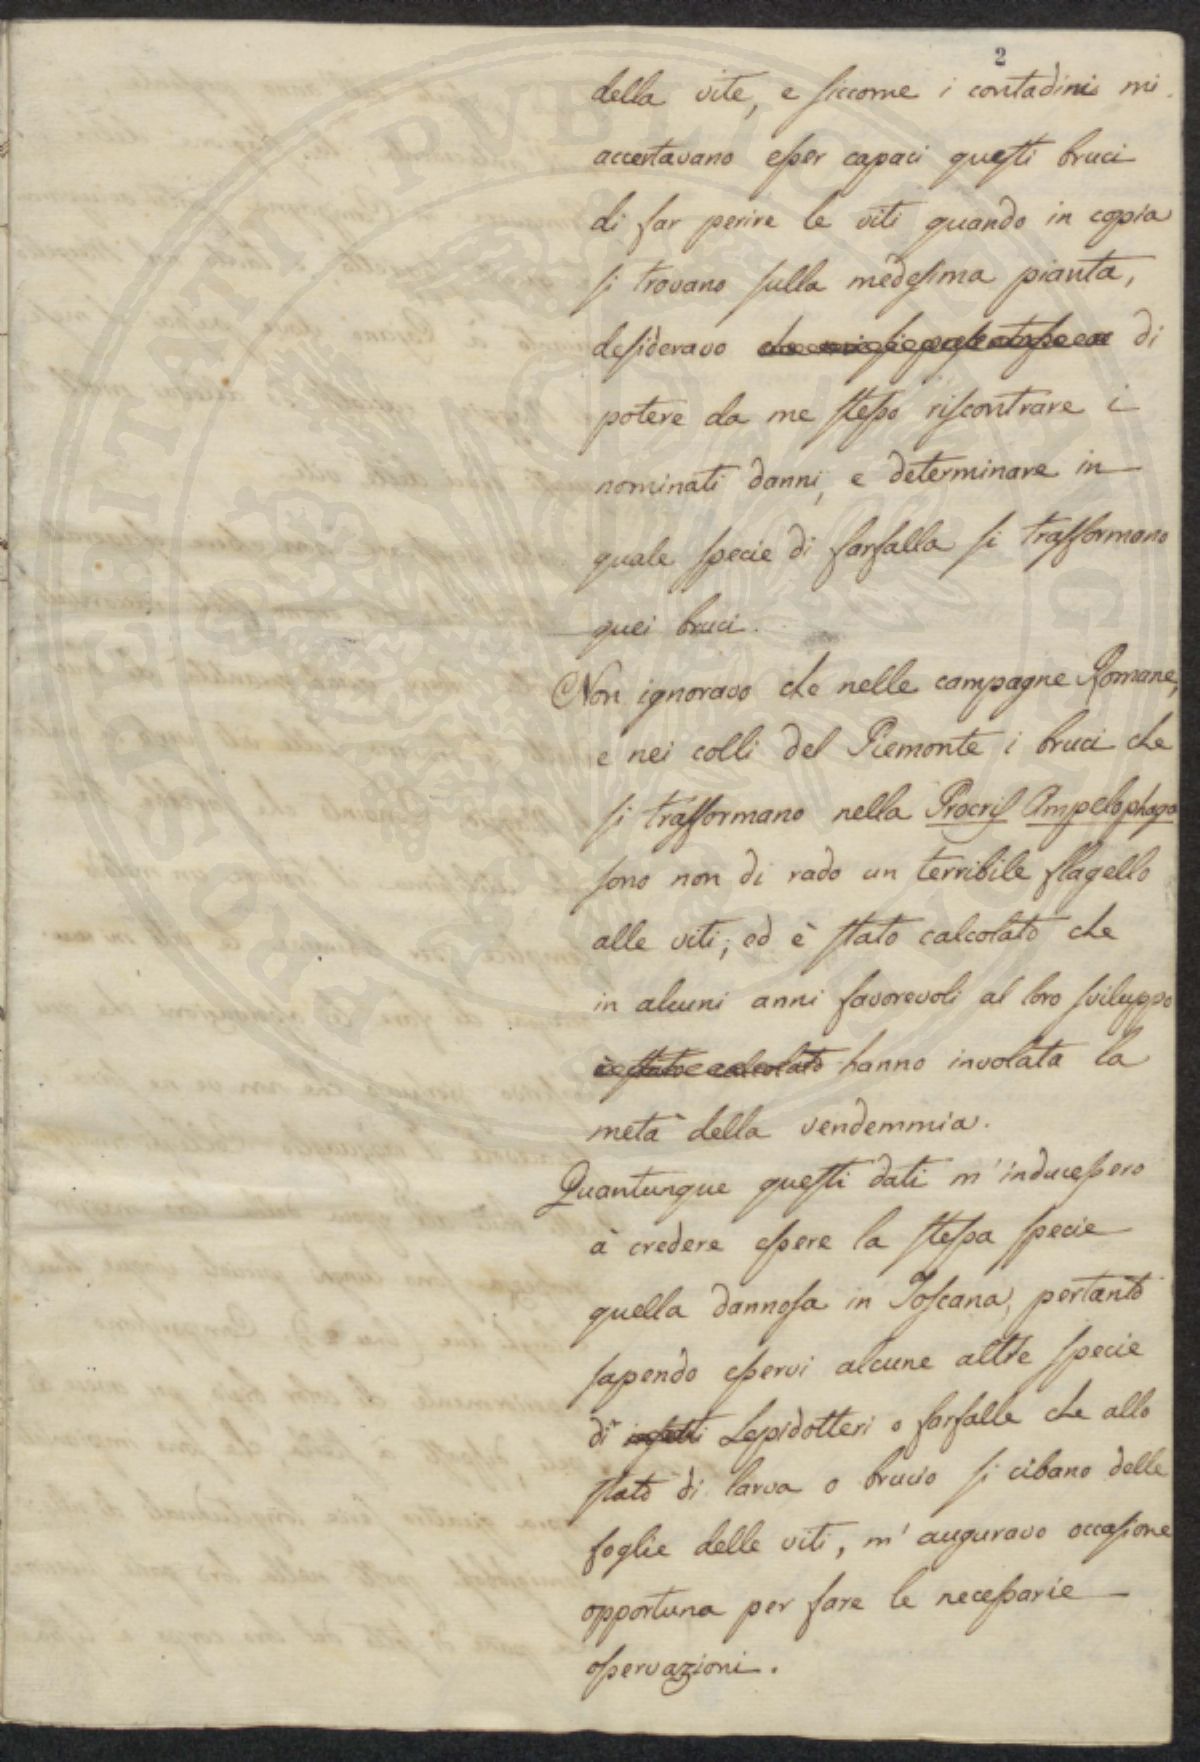 2
della vite, e siccome i contadini mi
accertavano esser capaci questi bruci
di far perire le viti quando in copia
si trovano sulla medesima pianta,
desideravo di
potere da me stesso riscontrare i
nominati danni, e determinare in
quale specie di farfalla si trasformano
quei bruci.
Non ignoravo che nelle campagne Romane,
e nei colli del Piemonte i bruci che
si trasformano nella Procris Ampelophaga
sono non di rado un terribile flagello
alle viti; ed è stato calcolato che
in alcuni anni favorevoli al loro sviluppo
è stato calcolato hanno involata la
metà della vendemmia.
Quantunque questi dati m'inducessero
à credere essere la stessa specie
quella dannosa in Toscana, pertanto
sapendo esservi alcune altre specie
di insetti Lepidotteri o farfalle che allo
stato di larva o brucio si cibano delle
foglie delle viti, m'auguravo occasione
opportuna per fare le necessarie
osservazioni.